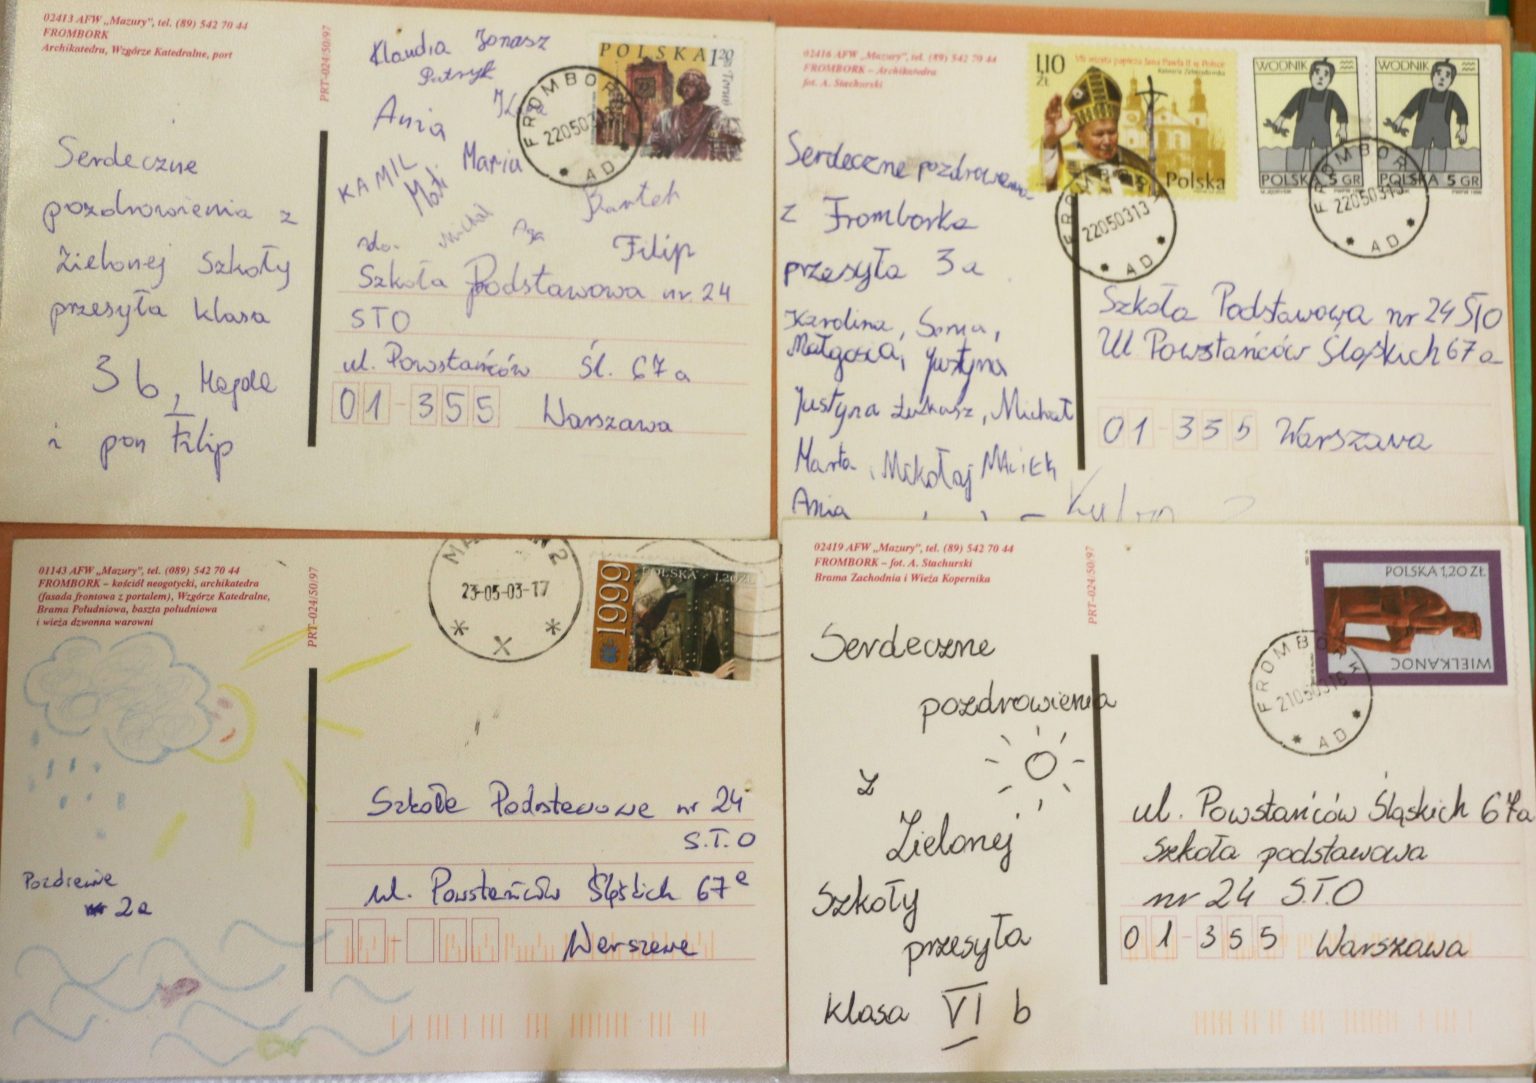 02413 AFW „Mazury”, tel. (89) 542 70 44
FROMBORK
Archikatedra, Wzgórze Katedralne, port
PRT-024/50/97
Klaudia Jonasz
Patryk
Ania Kasia
KAMIL Mati Maria
Michał Aga Bartek
Filip
POLSKA 120
Toruń
FROMBORK
220503
AD
Serdeczne
pozdrowienia z
Zielonej Szkoły
przesyła klasa
3 b, Magda
i pan Filip
do.
Szkoła Podstawowa nr 24
STO
ul. Powstańców Śl. 67 a
01-355 Warszawa
02416 AFW „Mazury”, tel. (89) 542 70 44
FROMBORK – Archikatedra
fot. A. Stachurski
110 ZŁ
VII wizyta papieża Jana Pawła II w Polsce
Kalwaria Zebrzydowska
Polska
WODNIK
POLSKA 5 GR
WODNIK
POLSKA 5 GR
FROMBORK
22050313
AD
FROMBORK
22050313
AD
Serdeczne pozdrowienia
z Fromborka
przesyła 3a
Karolina, Sonia,
Małgosia, Justyna
Justyna Łukasz, Michał
Marta, Mikołaj Maciek
Ania
Szkoła Podstawowa nr 24 STO
Ul Powstańców Śląskich 67a
01-355 Warszawa
01143 AFW „Mazury”, tel. (089) 542 70 44
FROMBORK – kościół neogotycki, archikatedra
(fasada frontowa z portalem), Wzgórze Katedralne,
Brama Południowa, baszta południowa
i wieża dzwonna warowni
PRT-024/50/97
23-05-03-17
1999
POLSKA 1,20ZŁ
Pozdrowie
2a
Szkoła Podstawowa nr 24
S.T.O
ul. Powstańców Śląskich 67a
Warszawa
02419 AFW „Mazury”, tel. (89) 542 70 44
FROMBORK – fot. A. Stachurski
Brama Zachodnia i Wieża Kopernika
PRT-024/50/97
POLSKA 1,20 ZŁ
WIELKANOC
FROMBORK
21050316
AD
Serdeczne
pozdrowienia
z
Zielonej
Szkoły
przesyła
klasa VI b
ul. Powstańców Śląskich 67a
szkoła podstawowa
nr 24 S.T.O
01-355 Warszawa